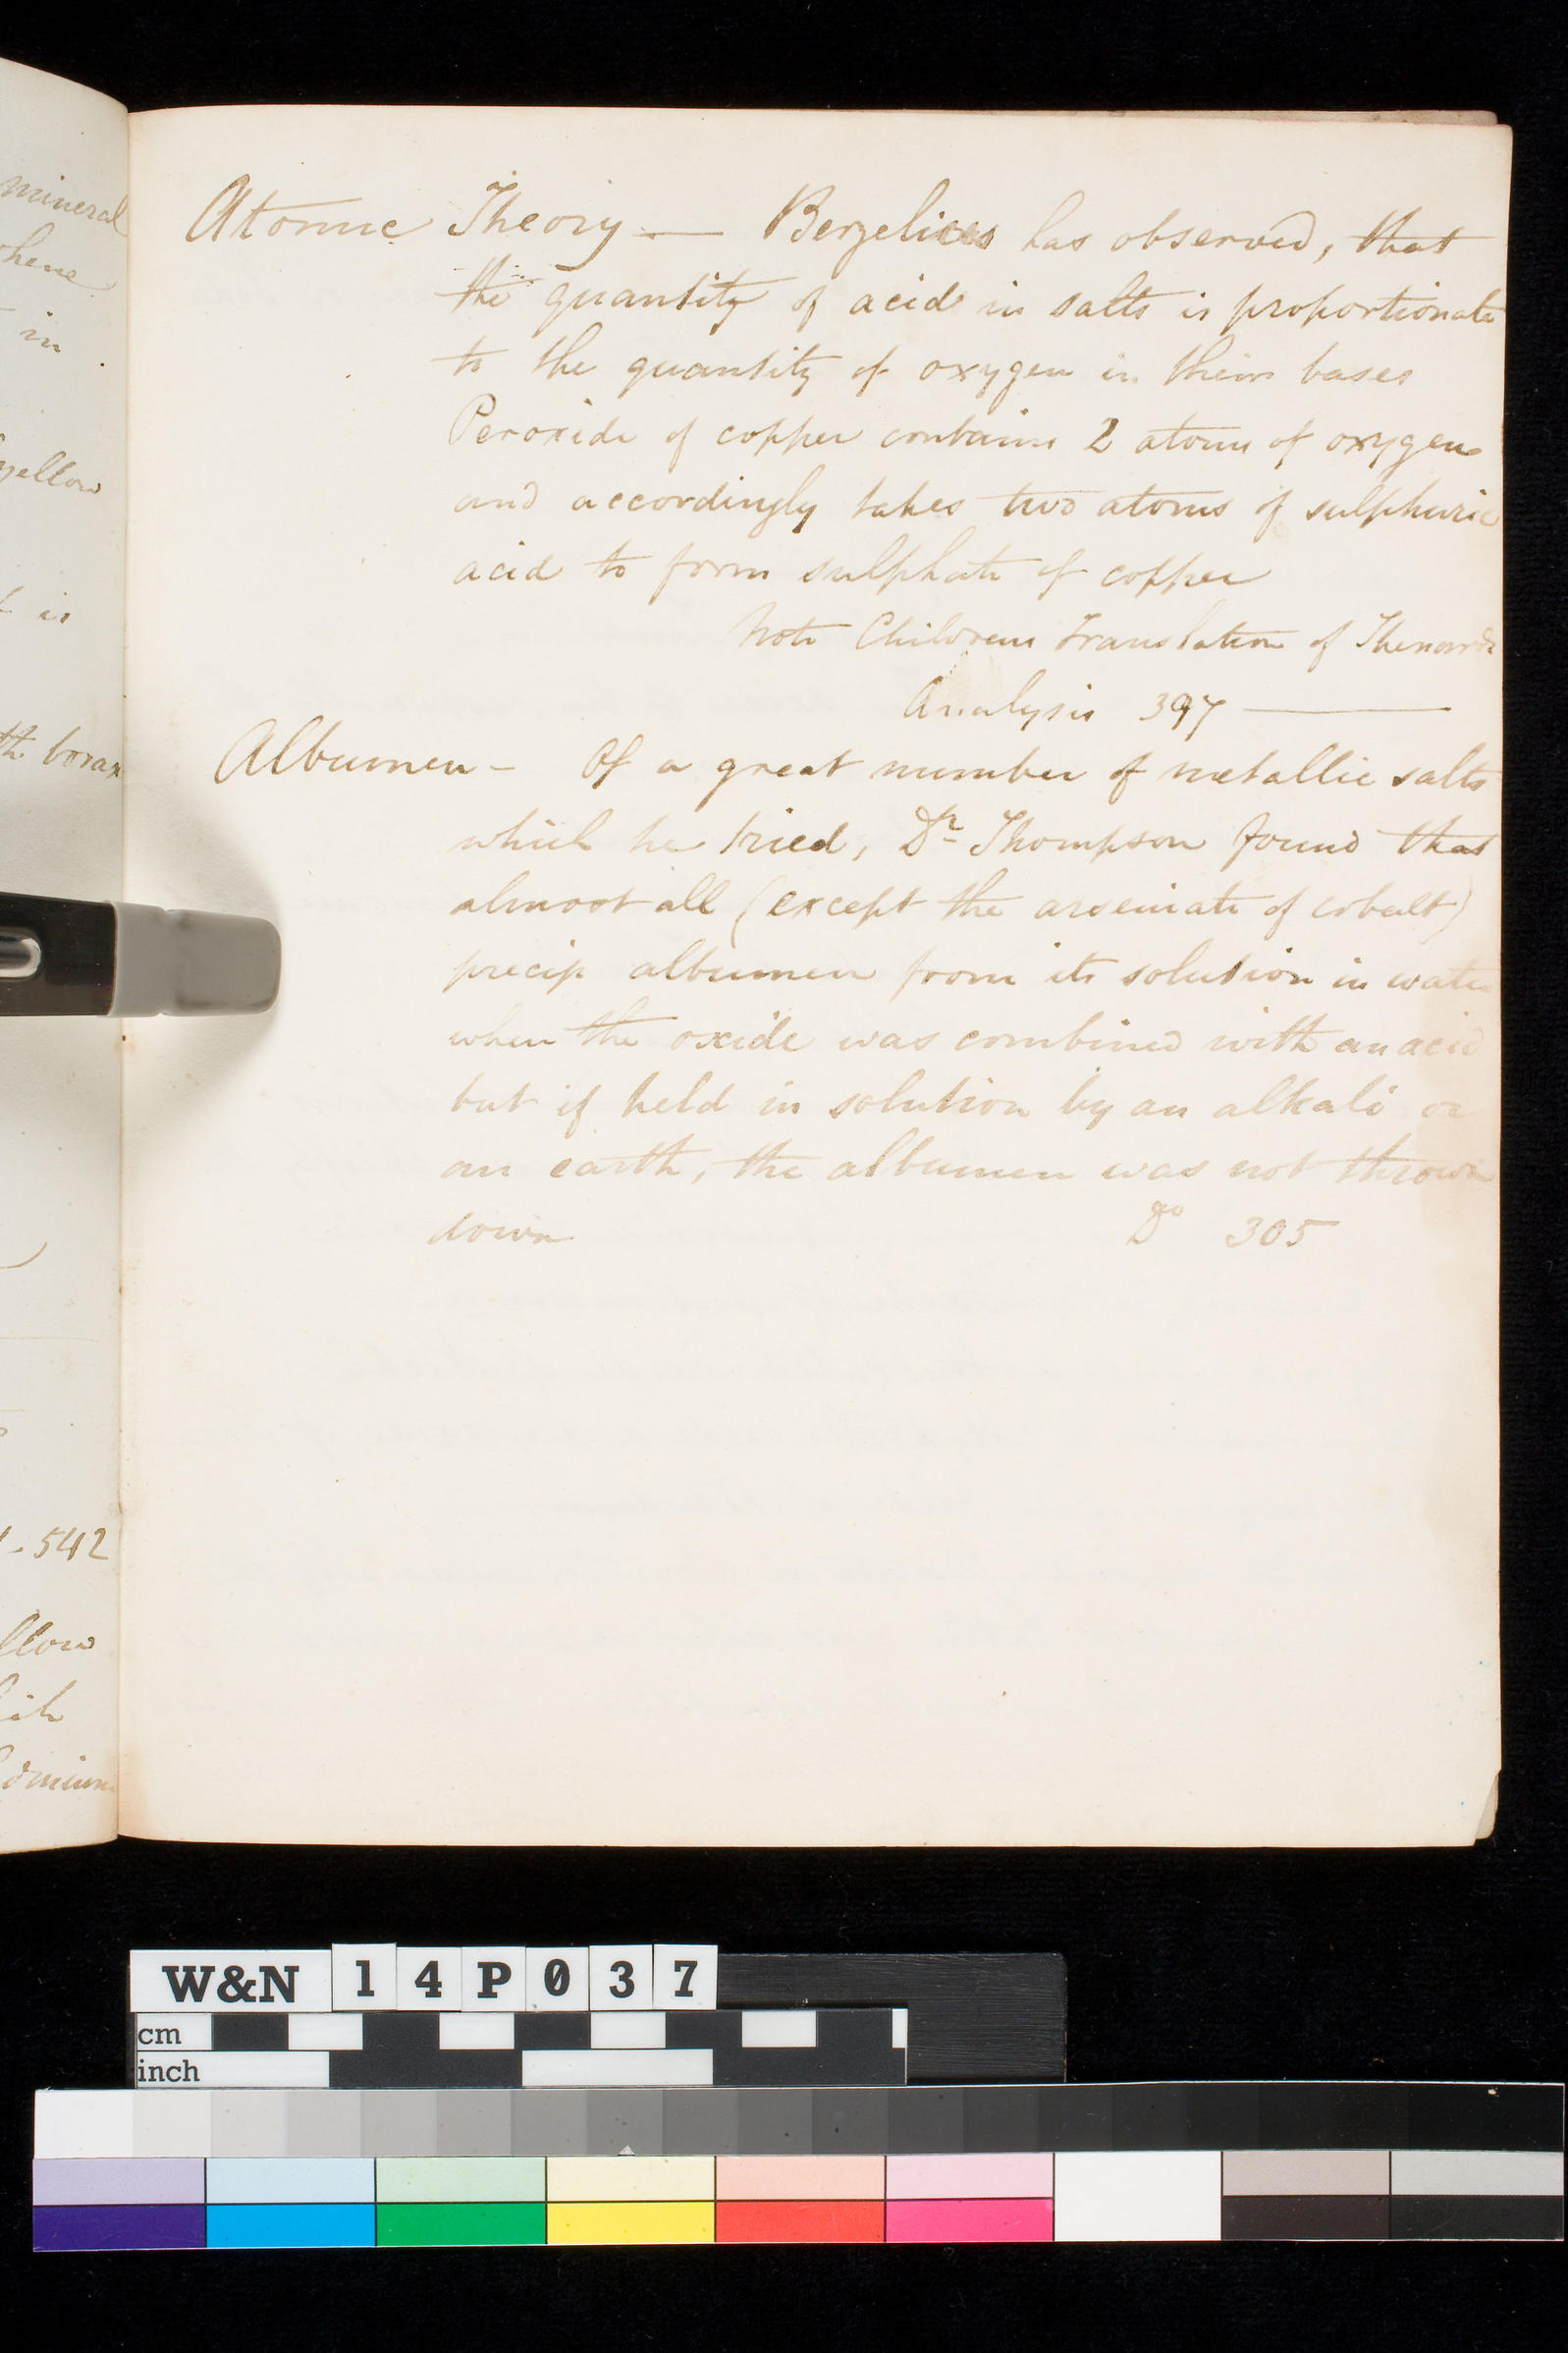 mineral
in
yellow
is
borax
542
Atomic Theory — Berzelius has observed, that
the quantity of acid in salts is proportionate
to the quantity of oxygen in their bases
Peroxide of copper contains 2 atoms of oxygen
and accordingly takes two atoms of sulphuric
acid to form sulphate of copper
Note Childrens Translation of Thenards
Analysis 397 —
Albumen - Of a great number of metallic salts
which he tried, Dr Thompson found that
almost all (except the arseniate of cobalt)
precip albumen from its solution in water
when the oxide was combined with an acid
but if held in solution by an alkali or
an earth, the albumen was not thrown
down Do 305
W&N 14P037
cm
inch